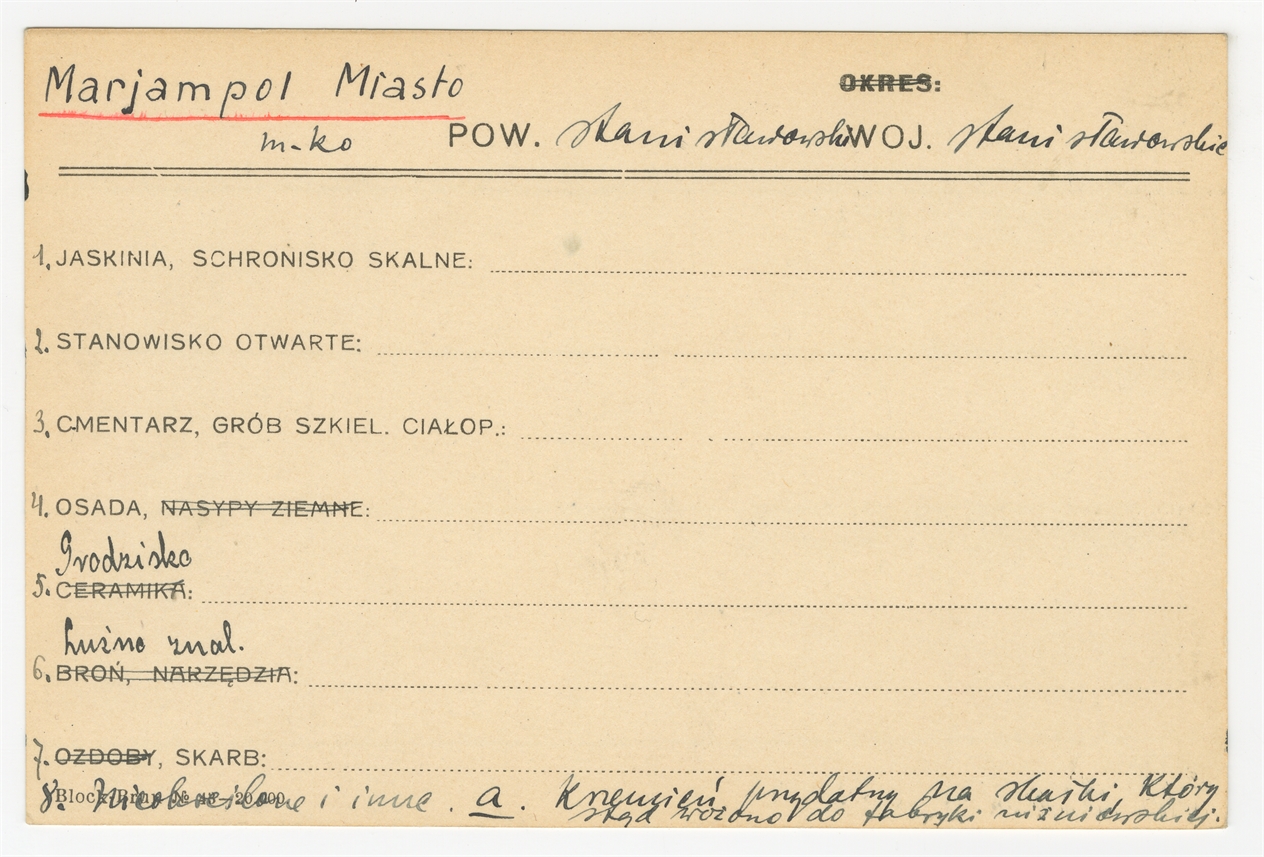 Marjampol Miasto
OKRES:
m-ko POW. stanisławowski WOJ. stanisławowskie
1. JASKINIA, SCHRONISKO SKALNE:
2. STANOWISKO OTWARTE:
3. CMENTARZ, GRÓB SZKIEL. CIAŁOP.:
4. OSADA, NASYPY ZIEMNE:
Grodzisko
5. CERAMIKA:
Luźne znal.
6. BROŃ, NARZĘDZIA:
7. OZDOBY, SKARB:
8. Nieokreślone i inne. a. Krzemień przydatny na skałki, który
stąd wożono do fabryki niżniowskiej.